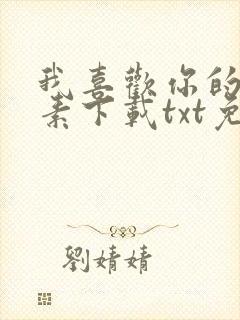 我喜歡你的
素下載txt免
劉婧婧